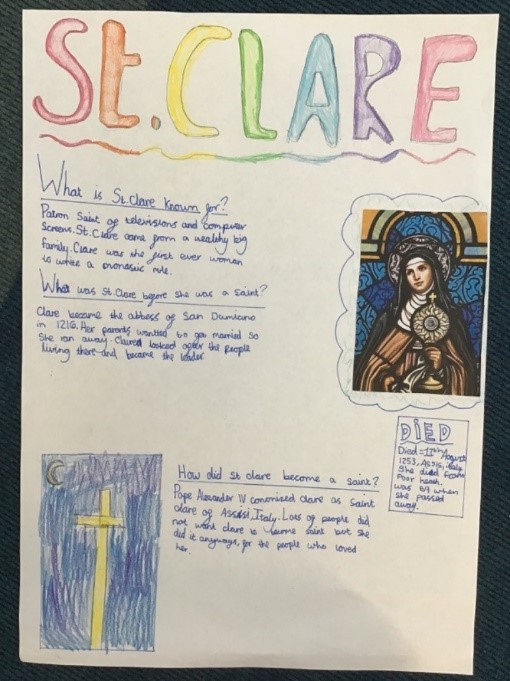 St. CLARE
What is St.Clare known for?
Patron Saint of televisions and computer
screens. St.Clare came from a wealthy big
family. Clare was the first ever woman
to write a monasic rule.
What was St.Clare before she was a Saint?
Clare became the abbess of San Damiano
in 1216. Her parents wanted to get married so
She ran away. Claire looked after the people
living there and became the leader.
DIED
Died = 11th August
1253, Assisi, Italy
She died from
Poor heath.
was 59 when
she passed
away.
How did st clare become a saint?
Pope Alexander IV canonized clare as Saint
clare of Assisi, Italy. Lots of people did
not want clare to become saint but she
did it anyways, for the people who loved
her.